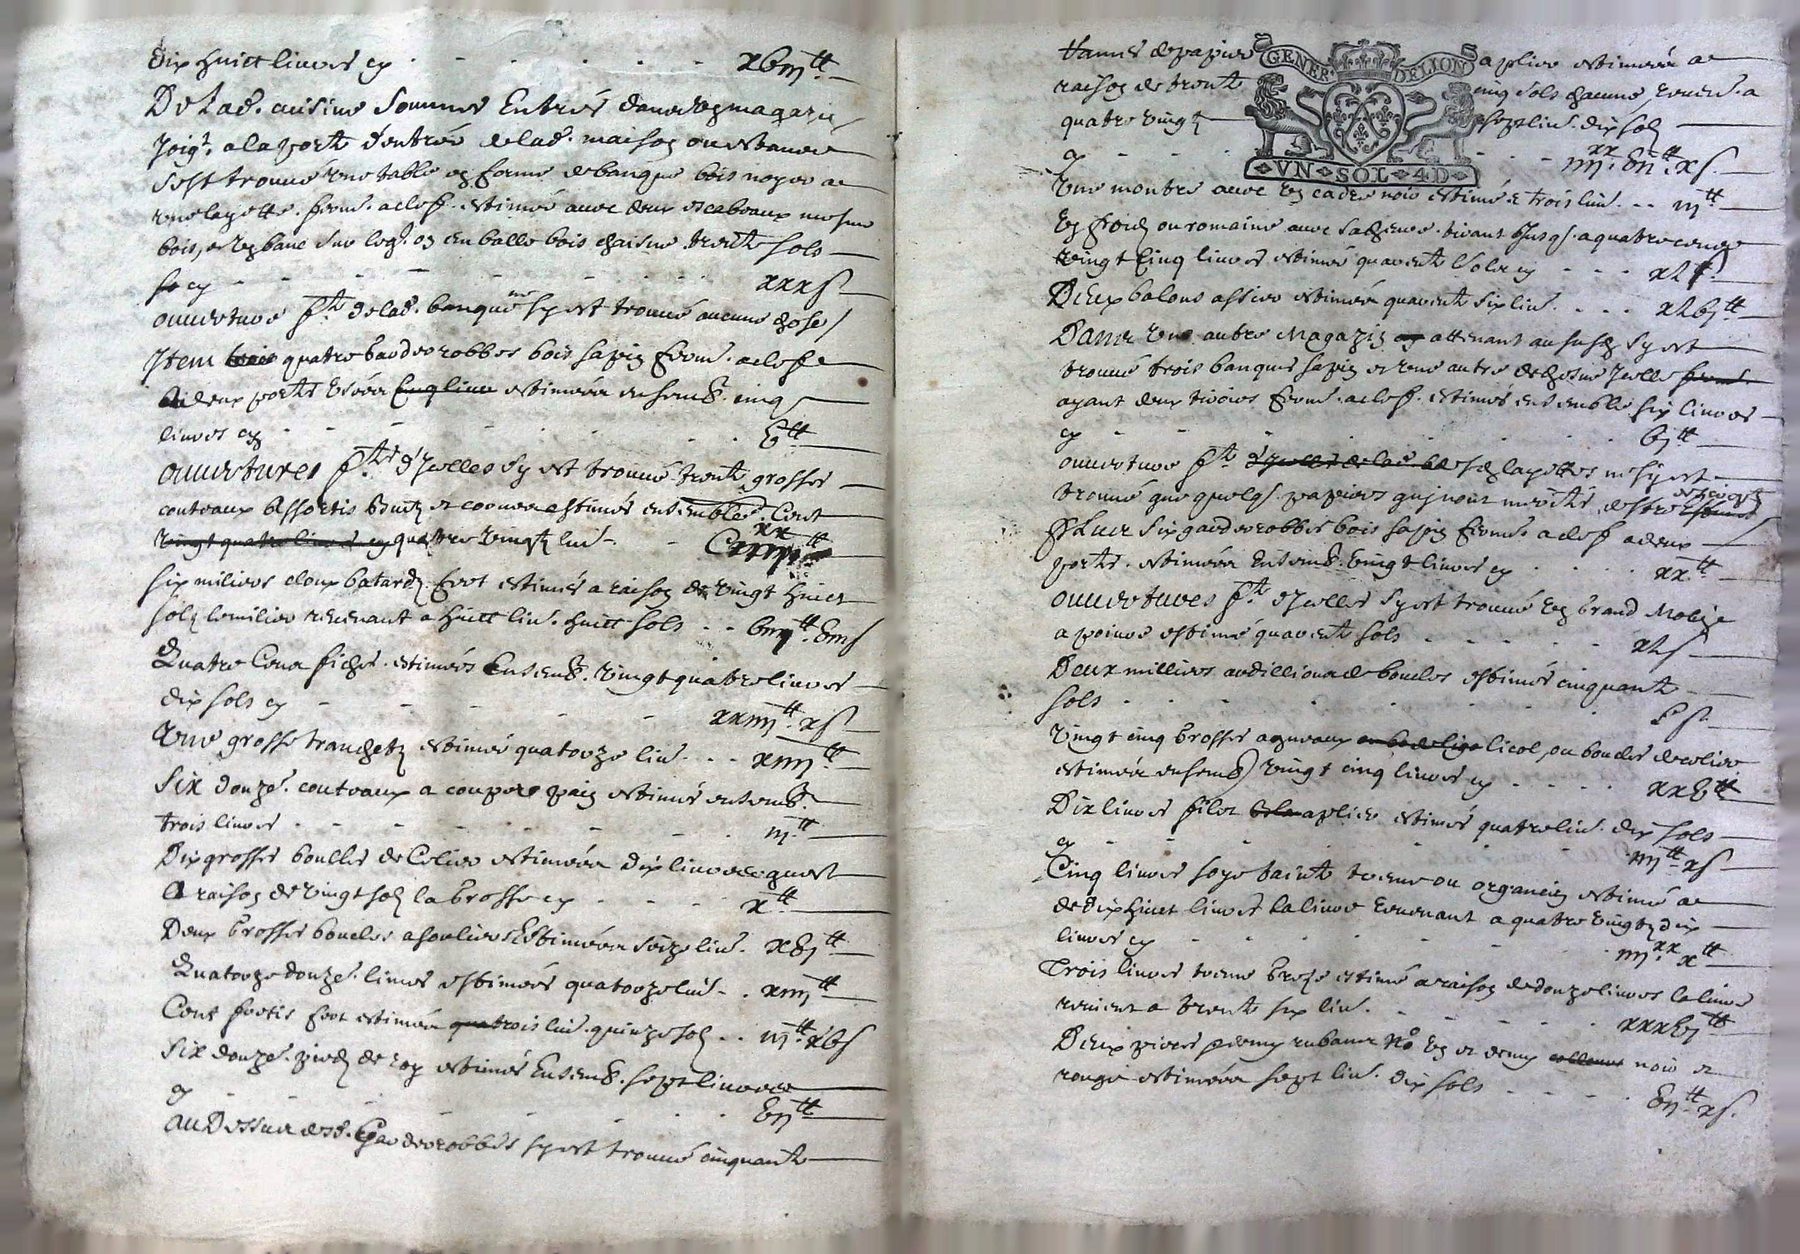 dix huitt livres cy - - - - - - xbiij ₶
De lad. cuisine sommes entrés dans un magazin
joigt. a la porte d'entrée de lad. maison ou estants
s'est trouvé une table en forme de banque bois noyer ac
une layette ferm. a clef estimé avec deux escabeaux mesme
bois, et un banc
bois sols
cy - - - xxx s
ouverture fte de lad. banque ne s'y est trouvé aucune chose
Item trois quatre garderobbes bois sapin ferm. a clef
a deux portes usées cinq livres estimées ensemb. cinq
livres cy - - - b ₶
ouvertures fte d'icelles s'y est trouvé trente grosses
couteaux assortis estimés ensembles Cent
vingt quatre livres cy quatre vingts liv. - - C iiij xx ₶
six miliers cloux batards fort estimés a raison de vingt huict
sols le milier revenant a huitt liv. huitt sols - - biij ₶ biij s
Quatre Cens fiches estimées ensemb. vingt quatre livres
dix sols cy - - - xxiiij ₶ x s
Une grosse tranchets estimés quatorze liv. - - xiiij ₶
Six douze. couteaux a couper pain estimés ensemb.
trois livres - - - iij ₶
Dix grosses boucles de Colier estimées dix livres quest
a raison de vingt sols la grosse cy - - - x ₶
Deux grosses boucles a souliers estimées seize liv. xbj ₶
Quatorze douze. limes estimées quatorze liv. - . xiiij ₶
Cent fort estimées qua trois liv. quinze sols - - iij ₶ xb s
Six douze. pieds de roy estimés ensemb. sept livres
cy - - - bij ₶
au dessus desd. garderobbes s'y est trouvé cinquante
rames de papier a plier estimées a
raison de trente cinq sols chacune, revien. a
quatre vingts sept liv. dix sols
cy - - - iiij xx bij ₶ x s
GENER DE LION
VN SOL 4D
Une montre avec un cadre noir estimée trois liv. - - iij ₶
Un ou romaine avec tirant jusq. a quatre cens
vingt cinq livres estimée quarente sols cy - - - xL s
Deux balons assier estimées quarente six liv. - - - xLbj ₶
Dans une autre Magazin attenant au susd. s'y est
trouvé trois banques sapin et une autre
ayant deux tiroirs ferm. a clef estimés ensemble six livres
cy - - - bj ₶
ouverture fte d'icelles de lad. desd. layettes ne s'y est
trouvé que quelq. papiers
Plus six garderobbes bois sapin ferm. a clef a deux
portes estimées ensemb. vingt livres cy - - - xx ₶
ouvertures fte d'icelles s'y est trouvé un grand
estimé quarente sols - - - xL s
Deux milliers ardillions de boucles estimés cinquante
sols - - - L s
Vingt cinq grosses anneaux licol, ou boucles de colier
estimées ensemb. vingt cinq livres cy - - - xxb ₶
Dix livres filet a plier estimés quatre liv. dix sols
cy - - - iiij ₶ x s
Cinq livres soye tainte trame ou organcin estimée a
de dix huict livres la livre revenant a quatre vingts dix
livres cy - - - iiij xx x ₶
Trois livres trame estimé a raison de douze livres la livre
revient a trente six liv. - - - xxxbj ₶
Deux pieces rubans No un et demy noir et
rouge estimées sept liv. dix sols - - - bij ₶ x s.